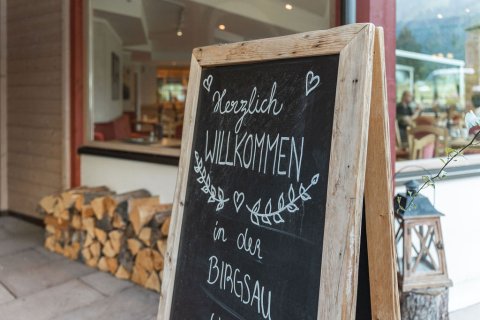 Herzlich
WILLKOMMEN
in der
BIRGSAU